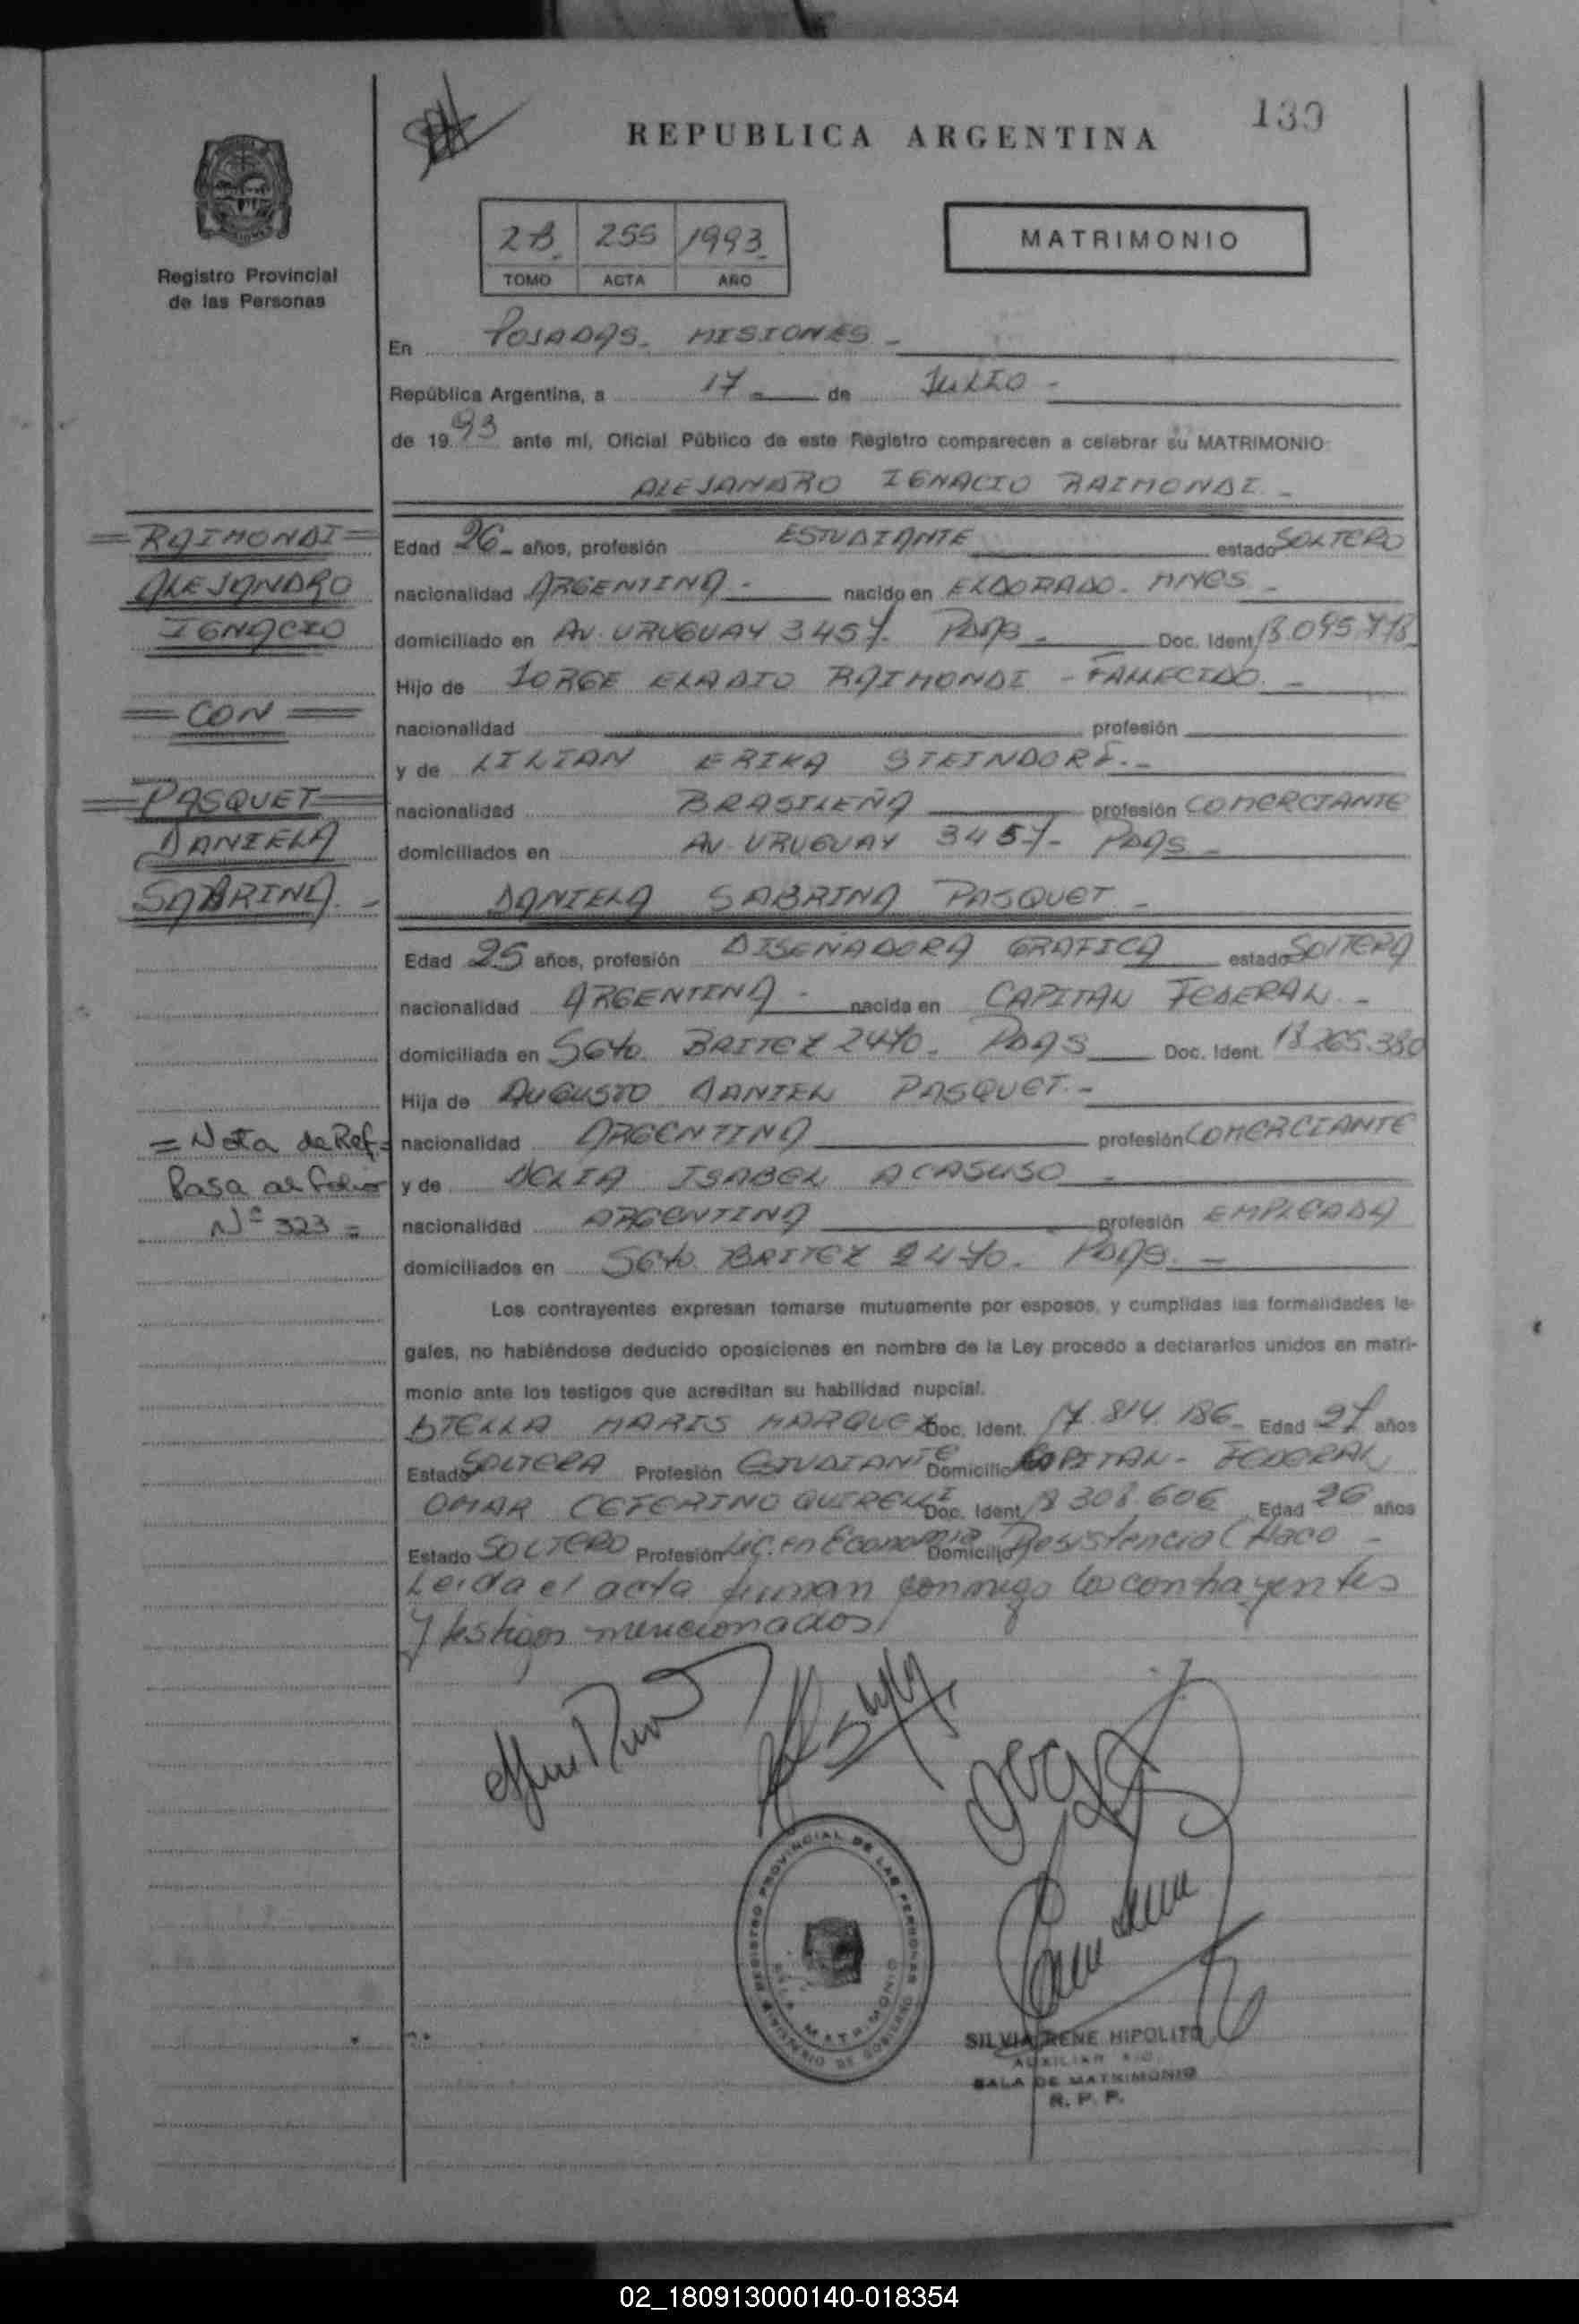 139
REPUBLICA ARGENTINA
Registro Provincial
de las Personas
2B 255 1993
TOMO ACTA AÑO
MATRIMONIO
En POSADAS - MISIONES -
República Argentina, a 17 de JULIO -
de 1993 ante mí, Oficial Público de este Registro comparecen a celebrar su MATRIMONIO
ALEJANDRO IGNACIO RAIMONDI -
Edad 26 años, profesión ESTUDIANTE estado SOLTERO
nacionalidad ARGENTINA - nacido en ELDORADO - MNES -
domiciliado en AV. URUGUAY 3457 PDAS - Doc. Ident 18.045.778
Hijo de JORGE ELADIO RAIMONDI - FALLECIDO -
nacionalidad profesión
y de LILIAN ERIKA STEINDORF -
nacionalidad BRASILEÑA profesión COMERCIANTE
domiciliados en AV. URUGUAY 3457 - PDAS -
DANIELA SABRINA PASQUET -
Edad 25 años, profesión DISEÑADORA GRAFICA estado SOLTERA
nacionalidad ARGENTINA - nacida en CAPITAL FEDERAL -
domiciliada en SGTO. BRITEZ 2470 - PDAS Doc. Ident. 18.265.380
Hija de AUGUSTO DANIEL PASQUET -
nacionalidad ARGENTINA profesión COMERCIANTE
y de DELIA ISABEL ACASUSO -
nacionalidad ARGENTINA profesión EMPLEADA
domiciliados en SGTO. BRITEZ 2470 - PDAS. -
Los contrayentes expresan tomarse mutuamente por esposos, y cumplidas las formalidades le-
gales, no habiéndose deducido oposiciones en nombre de la Ley procedo a declararlos unidos en matri-
monio ante los testigos que acreditan su habilidad nupcial.
STELLA MARIS MARQUEZ Doc. Ident. 17.814.186 Edad 27 años
Estado SOLTERA Profesión ESTUDIANTE Domicilio CAPITAL - FEDERAL
OMAR CEFERINO QUIRELLI Doc. Ident 18 308.606 Edad 26 años
Estado SOLTERO Profesión Lic. en Economia Domicilio Resistencia Chaco -
Leída el acta firman conmigo los contrayentes
y testigos mencionados
= RAIMONDI =
ALEJANDRO
IGNACIO
= CON =
= PASQUET =
DANIELA
SABRINA. -
= Nota de Ref. =
Pasa al folio
Nº 323 =
REGISTRO PROVINCIAL DE LAS PERSONAS
MINISTERIO DE GOBIERNO
SALA MATRIMONIO
SILVIA IRENE HIPOLITO
SALA DE MATRIMONIO
R. P. P.
02_180913000140-018354